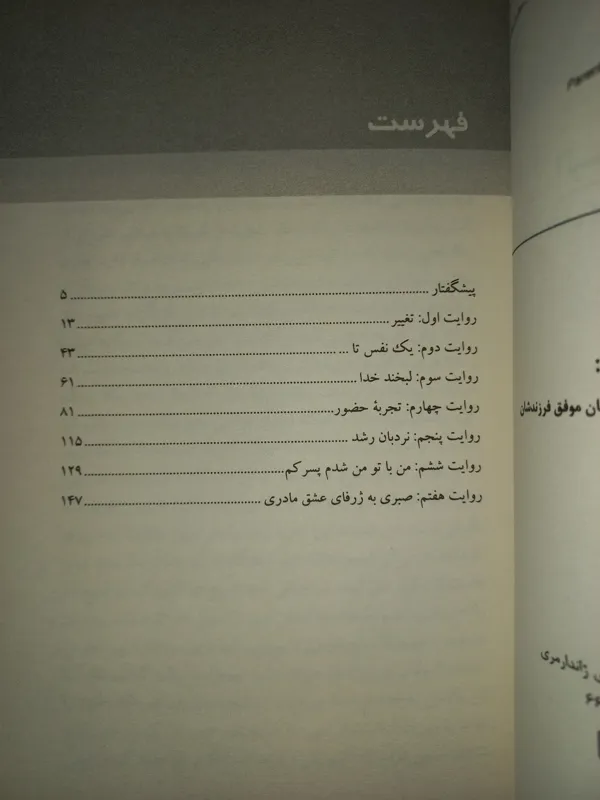 فهرست
پیشگفتار ........ ۵
روایت اول: تغییر ........ ۱۳
روایت دوم: یک نفس تا ... ........ ۴۳
روایت سوم: لبخند خدا ........ ۶۱
روایت چهارم: تجربهٔ حضور ........ ۸۱
روایت پنجم: نردبان رشد ........ ۱۱۵
روایت ششم: من با تو من شدم پسرکم ........ ۱۲۹
روایت هفتم: صبری به ژرفای عشق مادری ........ ۱۴۷
موفق فرزندشان
ژاندارمری